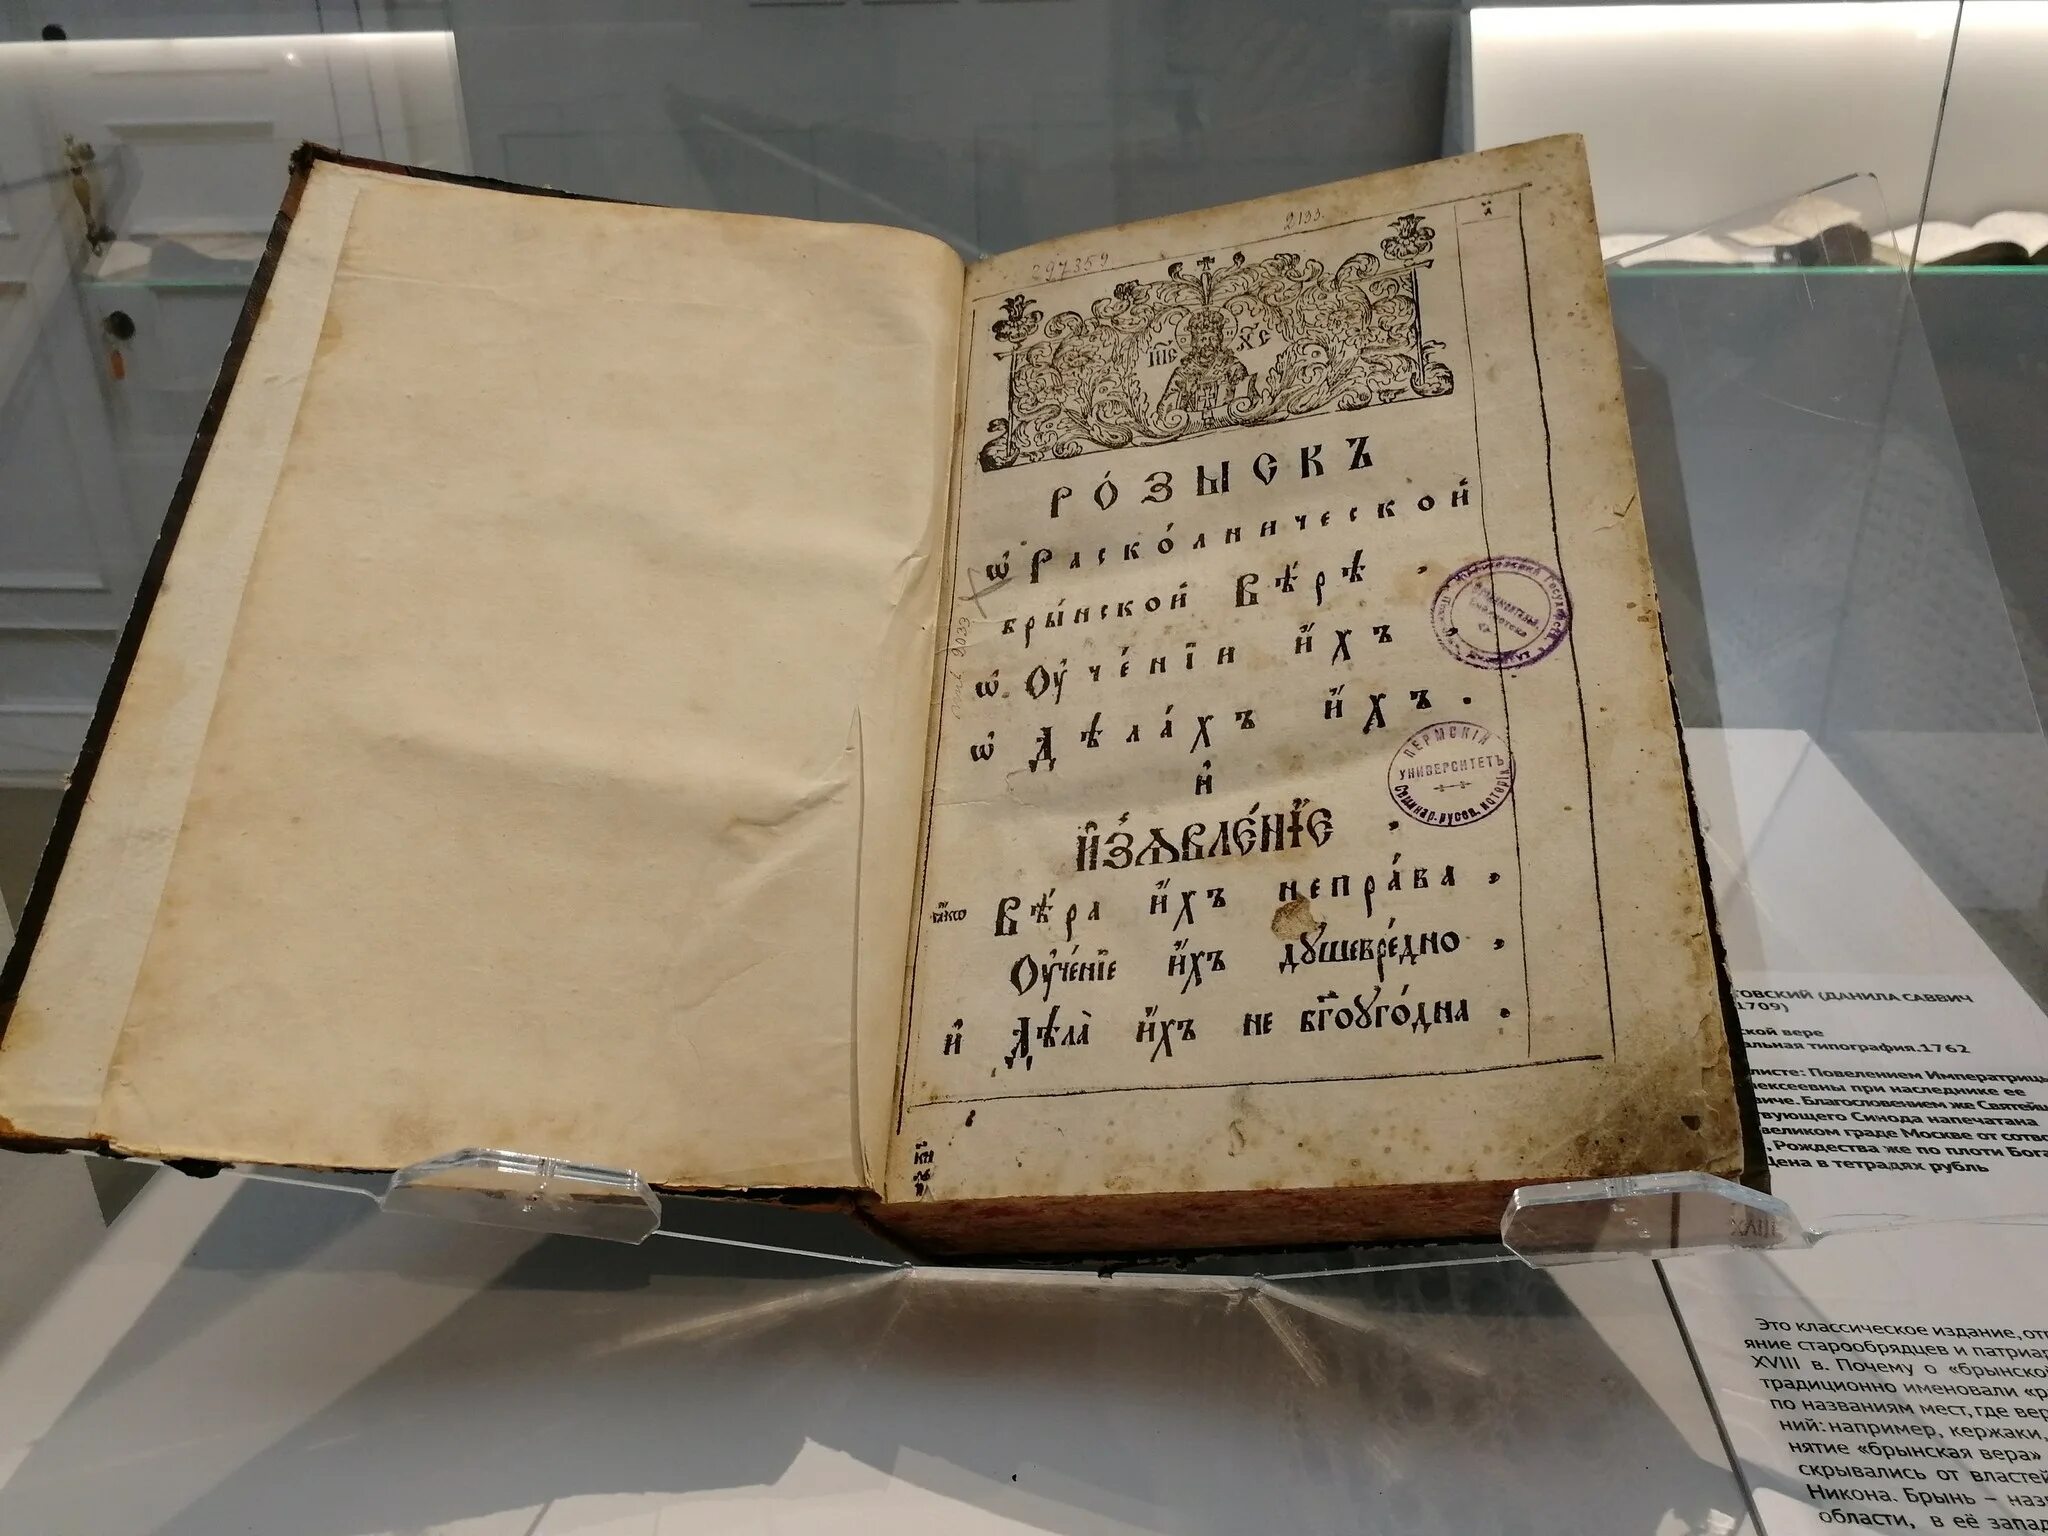 297359
2133.
І҃І҃С Х҃С
РО́ЗЫСКЪ
ѽ Раско́лнической
бры́нской Вѣ́рѣ ,
ѽ Оу҆че́нїи и҆́хъ ,
ѽ Дѣла́хъ и҆́хъ .
и҆
И҆З̾ѦВЛЕ́НЇЕ ,
ꙗ҆́кѡ Вѣ́ра и҆́хъ непра́ва ,
Оу҆че́нїе и҆́хъ дꙋшевре́дно ,
и҆ Дѣла̀ и҆́хъ не бг҃оуго́дна .
2033
ПЕРМСКІЙ
УНИВЕРСИТЕТЪ
Семинар. русск. исторіи
ТОВСКИЙ (ДАНИЛА САВВИЧ
1709)
ской вере
альная типография.1762
листе: Повелением Императрицы
ексеевны при наследнике ее
виче. Благословением же Святей
вующего Синода напечатана
великом граде Москве от сотво
, Рождества же по плоти Бога
Цена в тетрадях рубль
XVIII
Это классическое издание, от
яние старообрядцев и патриар
XVIII в. Почему о «брынско
традиционно именовали «р
по названиям мест, где вер
ний: например, кержаки,
нятие «брынская вера»
скрывались от властей
Никона. Брынь – наз
области, в её запад